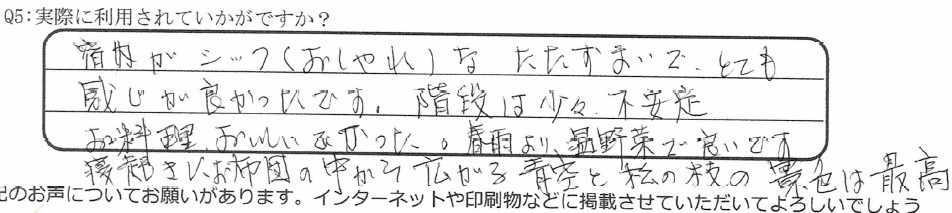 Q5:実際に利用されていかがですか？
宿内がシック(おしゃれ)なたたずまいで、とても
感じが良かったです。階段は少々不安定
お料理、おいしかった。春雨より、温野菜で良いです
寝起きにお布団の中から広がる青空と松の枝の景色は最高
記のお声についてお願いがあります。インターネットや印刷物などに掲載させていただいてよろしいでしょう